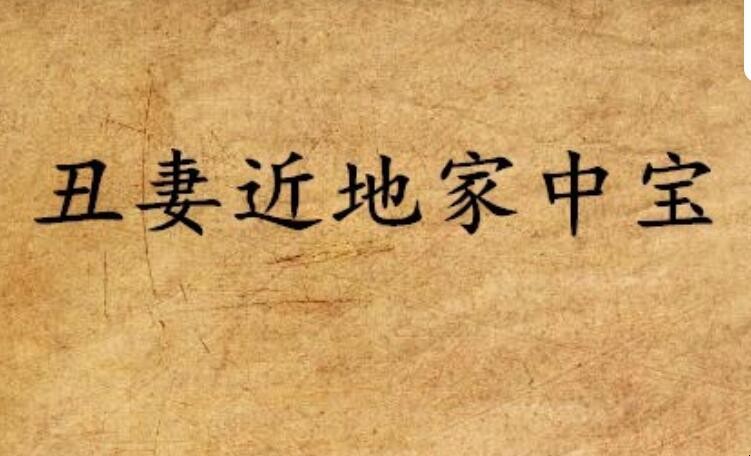 丑妻近地家中宝